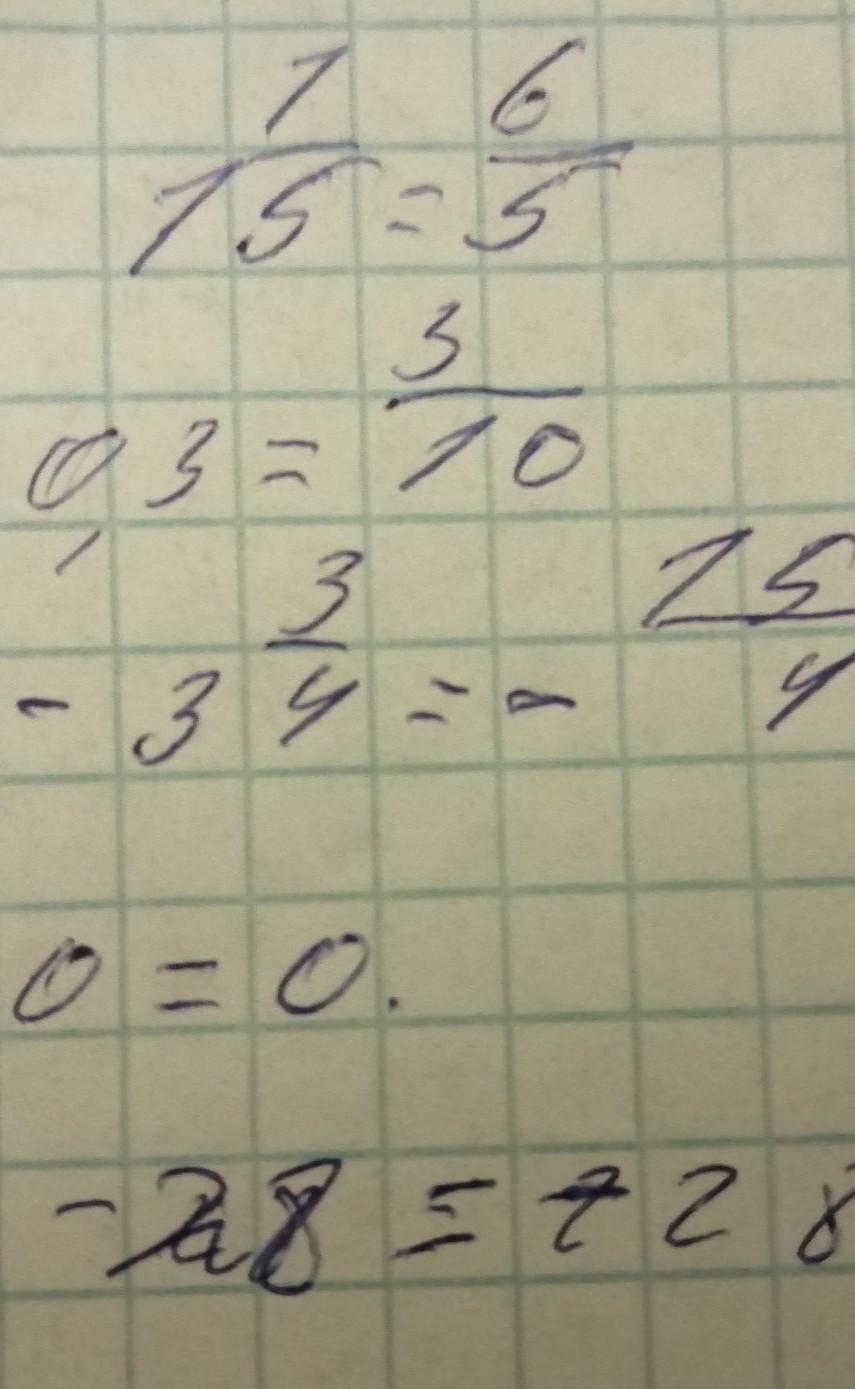 1 1/5 = 6/5
0,3 = 3/10
- 3 3/4 = - 15/4
0 = 0.
- 28 = - 28